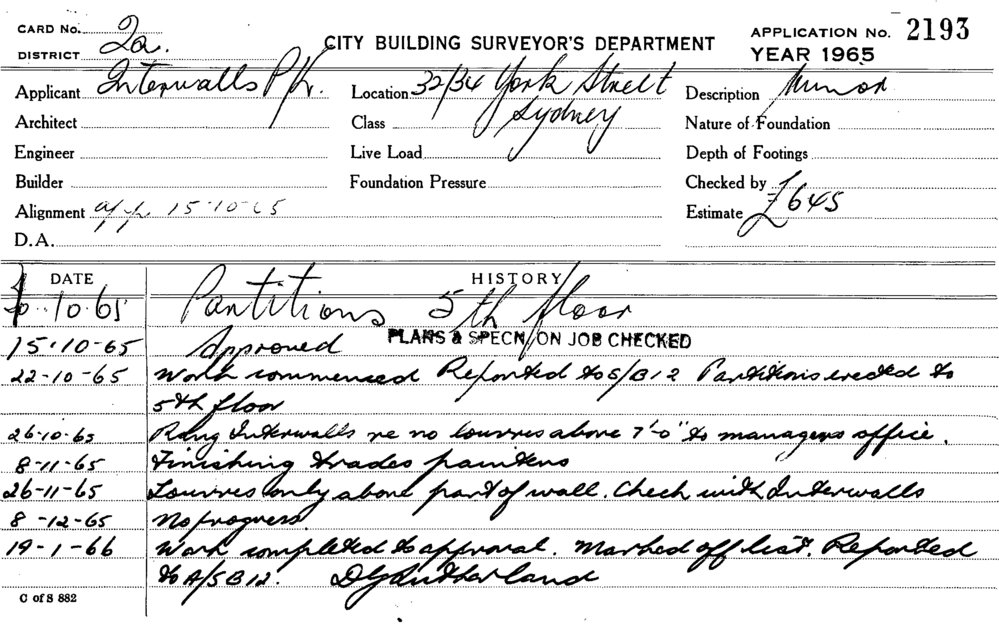 CARD No. 2a.
DISTRICT
CITY BUILDING SURVEYOR'S DEPARTMENT
APPLICATION No. 2193
YEAR 1965
Applicant Interwalls P/L. Location 32/34 York Street Description Minor
Architect Class Sydney Nature of Foundation
Engineer Live Load Depth of Footings
Builder Foundation Pressure Checked by
Alignment app. 15-10-65 Estimate £645
D.A.
DATE HISTORY
10-65 Partitions 5th floor
15-10-65 Approved PLANS & SPECN ON JOB CHECKED
22-10-65 Work commenced Reported to S/B12 Partitions erected to
5th floor
26-10-65 Rang Interwalls re no louvres above 7'-0" to managers office.
8-11-65 Finishing trades painters
26-11-65 Louvres only above part of wall. Check with Interwalls
8-12-65 No progress.
19-1-66 Work completed to approval. Marked off list. Reported
to A/SB12. DG Sutherland
C of S 882